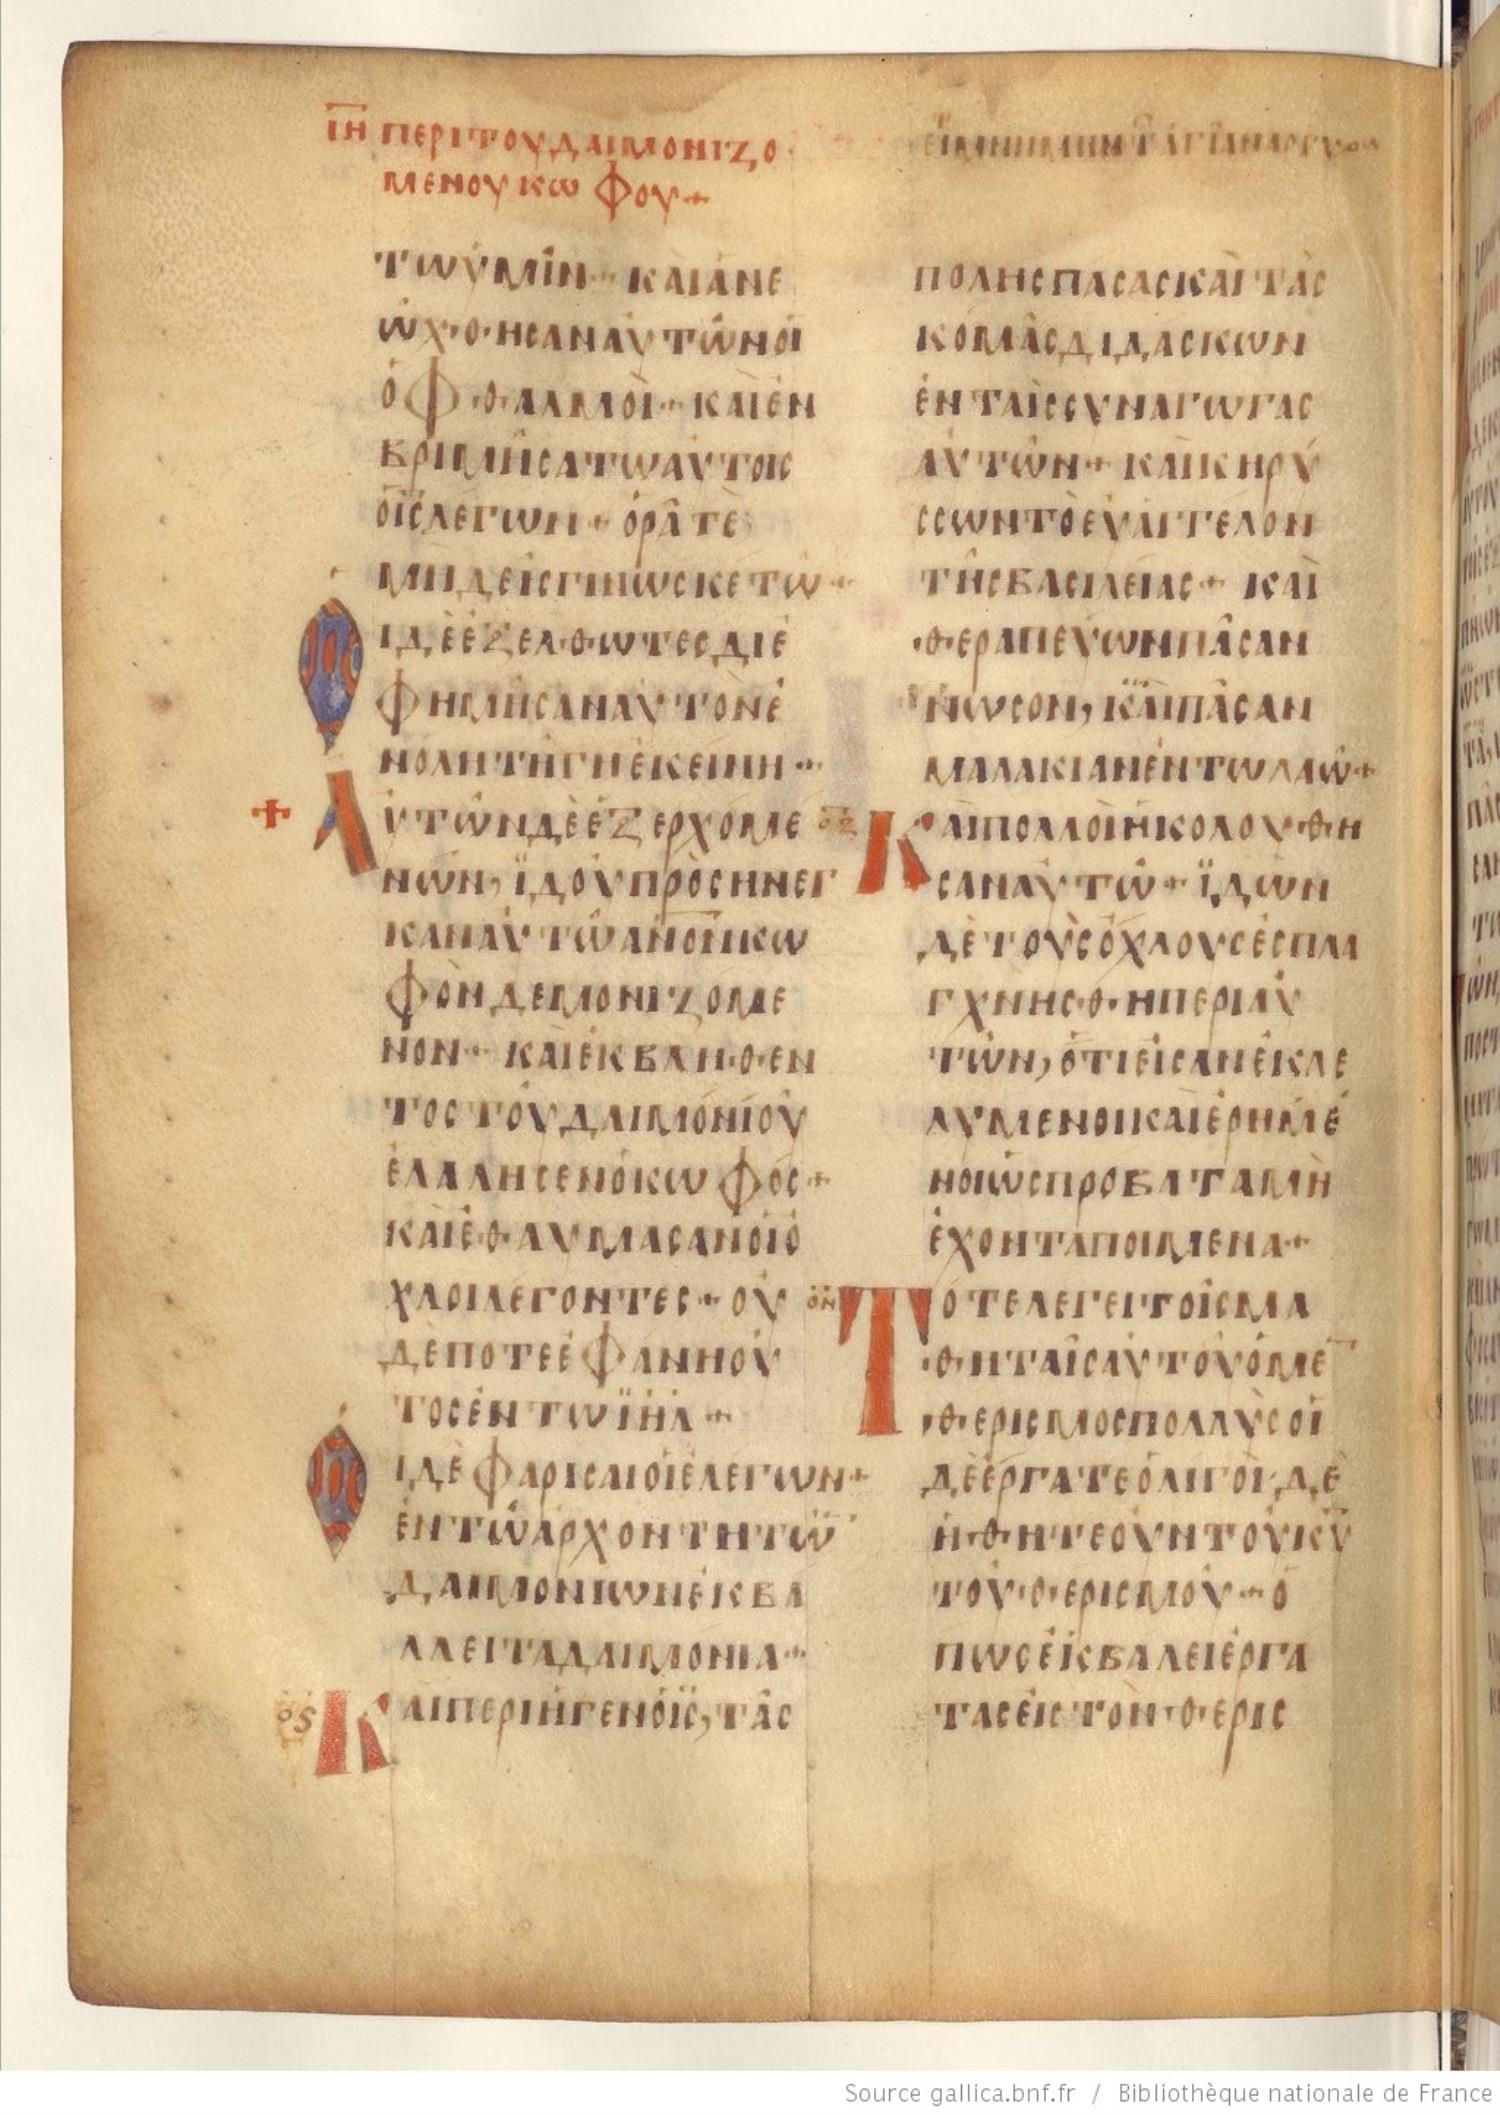 ΙΗ ΠΕΡΙ ΤΟΥ ΔΑΙΜΟΝΙΖΟ
ΜΕΝΟΥ ΚΩΦΟΥ+
ΤΩ ΥΜΙΝ·· ΚΑΙ ΑΝΕ
ΩΧΘΗΣΑΝ ΑΥΤΩΝ ΟΙ
ΟΦΘΑΛΜΟΙ·· ΚΑΙ ΕΝ
ΒΡΙΜΗΣΑΤΩ ΑΥΤΟΙΣ
ΟΙΣ ΛΕΓΩΝ+ ΟΡΑΤΕ
ΜΗΔΕΙΣ ΓΙΝΩΣΚΕΤΩ+
ΙΔΕ ΕΖΕΛΘΩΤΕΣ ΔΙΕ
ΦΗΜΗΣΑΝ ΑΥΤΟΝ Ε
ΝΟΛΗ ΤΗ ΓΗ ΕΚΕΙΝΗ··
ΑΥΤΩΝ ΔΕ ΕΖΕΡΧΟΜΕ
ΝΩΝ, ΪΔΟΥ ΠΡΟΣΗΝΕΓ
ΚΑΝ ΑΥΤΩ ΑΝΟΝ ΚΩ
ΦΟΝ ΔΕΜΟΝΙΖΟΜΕ
ΝΟΝ+ ΚΑΙ ΕΚΒΛΗΘΕΝ
ΤΟΣ ΤΟΥ ΔΑΙΜΟΝΙΟΥ
ΕΛΑΛΗΣΕΝ Ο ΚΩΦΟΣ+
ΚΑΙ ΕΘΑΥΜΑΣΑΝ ΟΙ Ο
ΧΛΟΙ ΛΕΓΟΝΤΕΣ+ ΟΥ
ΔΕΠΟΤΕ ΕΦΑΝΗ ΟΥ
ΤΟΣ ΕΝ ΤΩ ΪΗΛ+
ΙΔΕ ΦΑΡΙΣΑΙΟΙ ΕΛΕΓΩΝ+
ΕΝ ΤΩ ΑΡΧΟΝΤΗ ΤΩ
ΔΑΙΜΟΝΙΩΝ ΕΚΒΑ
ΛΛΕΙ ΤΑ ΔΑΙΜΟΝΙΑ+
ΟϚ ΚΑΙ ΠΕΡΙΗΓΕΝ Ο ΙΣ, ΤΑΣ
ΠΟΛΗΣ ΠΑΣΑΣ ΚΑΙ ΤΑΣ
ΚΟΜΑΣ ΔΙΔΑΣΚΩΝ
ΕΝ ΤΑΙΣ ΣΥΝΑΓΩΓΑΣ
ΑΥΤΩΝ+ ΚΑΙ ΚΗΡΥ
ΣΣΩΝ ΤΟ ΕΥΑΓΓΕΛΟΝ
ΤΗΣ ΒΑΣΙΛΕΙΑΣ+ ΚΑΙ
ΘΕΡΑΠΕΥΩΝ ΠΑΣΑΝ
ΝΩΣΟΝ, ΚΑΙ ΠΑΣΑΝ
ΜΑΛΑΚΙΑΝ ΕΝ ΤΩ ΛΑΩ+
ΟΖ ΚΑΙ ΠΟΛΛΟΙ ΗΚΟΛΟΥΘΗ
ΣΑΝ ΑΥΤΩ+ ΪΔΩΝ
ΔΕ ΤΟΥΣ ΟΧΛΟΥΣ ΕΣΠΛΑ
ΓΧΝΗΣΘΗ ΠΕΡΙ ΑΥ
ΤΩΝ, ΟΤΙ ΕΙΣΑΝ ΕΚΛΕ
ΛΥΜΕΝΟΙ ΚΑΙ ΕΡΗΜΕ
ΝΟΙ ΩΣ ΠΡΟΒΑΤΑ ΜΗ
ΕΧΟΝΤΑ ΠΟΙΜΕΝΑ+
ΟΗ ΤΟΤΕ ΛΕΓΕΙ ΤΟΙΣ ΜΑ
ΘΗΤΑΙΣ ΑΥΤΟΥ Ο ΜΕ
ΘΕΡΙΣΜΟΣ ΠΟΛΛΥΣ ΟΙ
ΔΕ ΕΡΓΑΤΕ ΟΛΙΓΟΙ· ΔΕ
ΗΘΗΤΕ ΟΥΝ ΤΟΥ ΚΥ
ΤΟΥ ΘΕΡΙΣΜΟΥ+ Ο
ΠΩΣ ΕΚΒΑΛΕΙ ΕΡΓΑ
ΤΑΣ ΕΙΣ ΤΟΝ ΘΕΡΙΣ
Source gallica.bnf.fr / Bibliothèque nationale de France